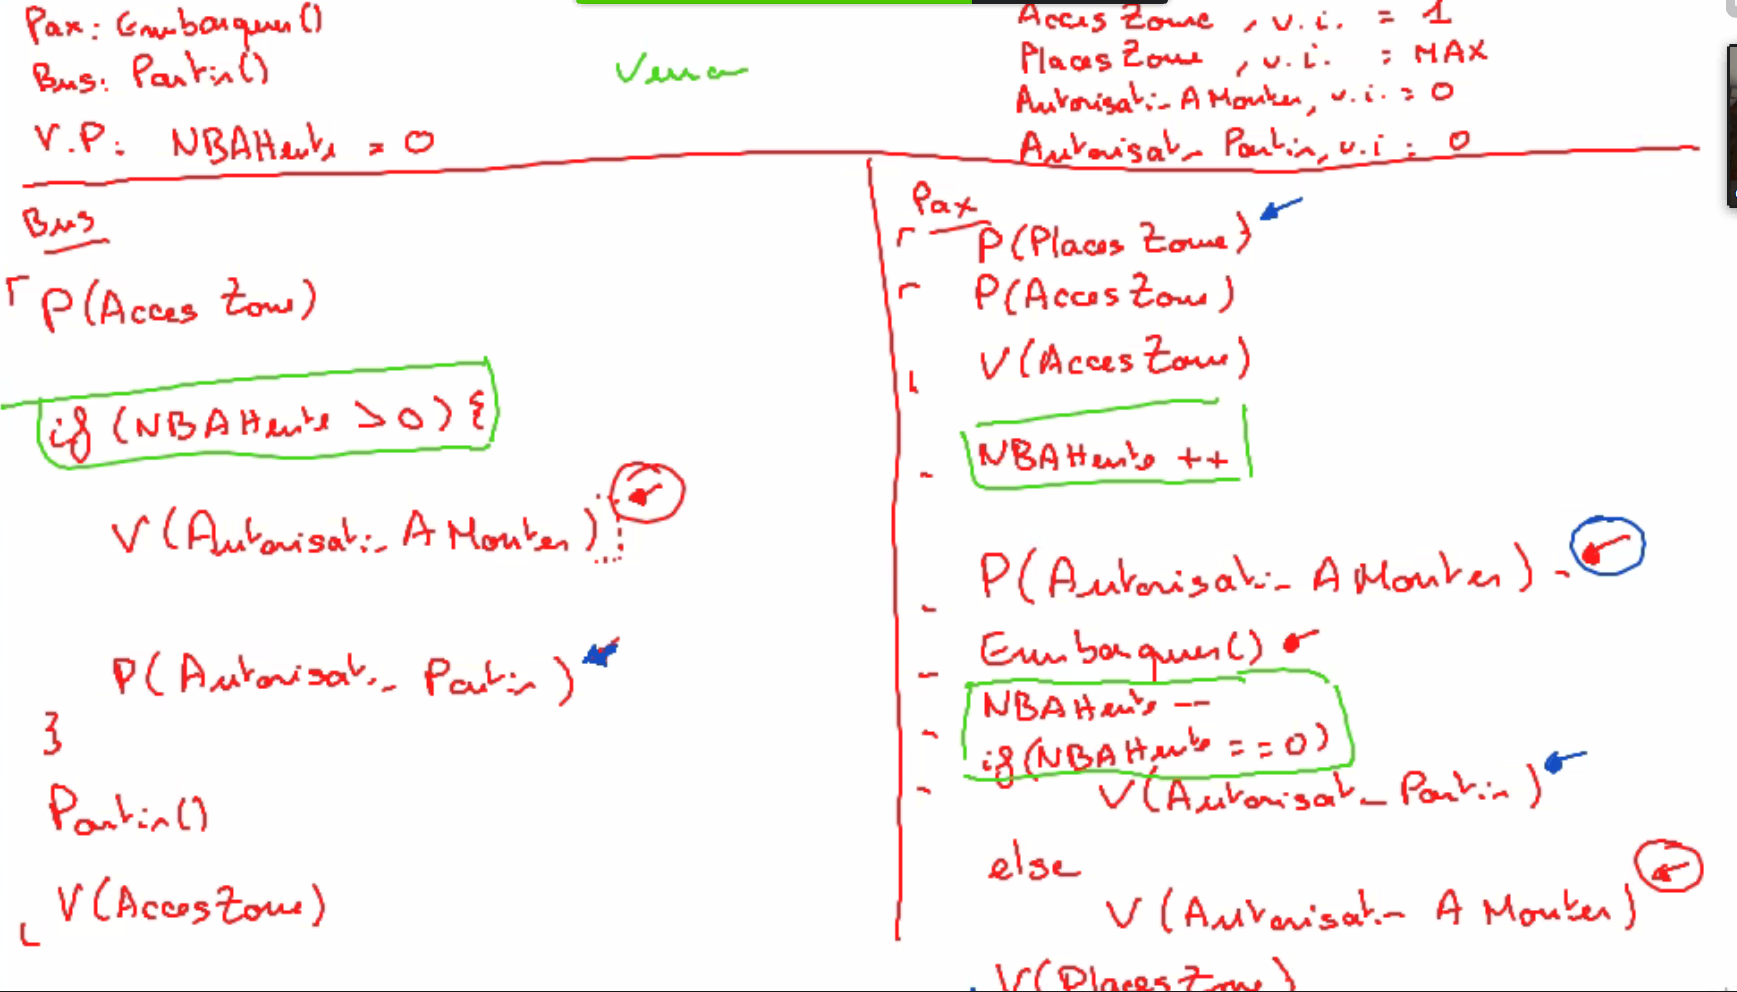 Pax: Embarquer()
Bus: Partir()
V.P: NBAttente = 0
Verrou
Acces Zone, v.i. = 1
Places Zone, v.i. = MAX
Autorisation A Monter, v.i. = 0
Autorisation Partir, v.i = 0
Bus
P(Acces Zone)
if (NBAttente > 0) {
V(Autorisation A Monter)
P(Autorisation Partir)
}
Partir()
V(Acces Zone)
Pax
P(Places Zone)
P(Acces Zone)
V(Acces Zone)
NBAttente ++
P(Autorisation A Monter)
Embarquer()
NBAttente --
if (NBAttente == 0)
V(Autorisation Partir)
else
V(Autorisation A Monter)
V(Places Zone)